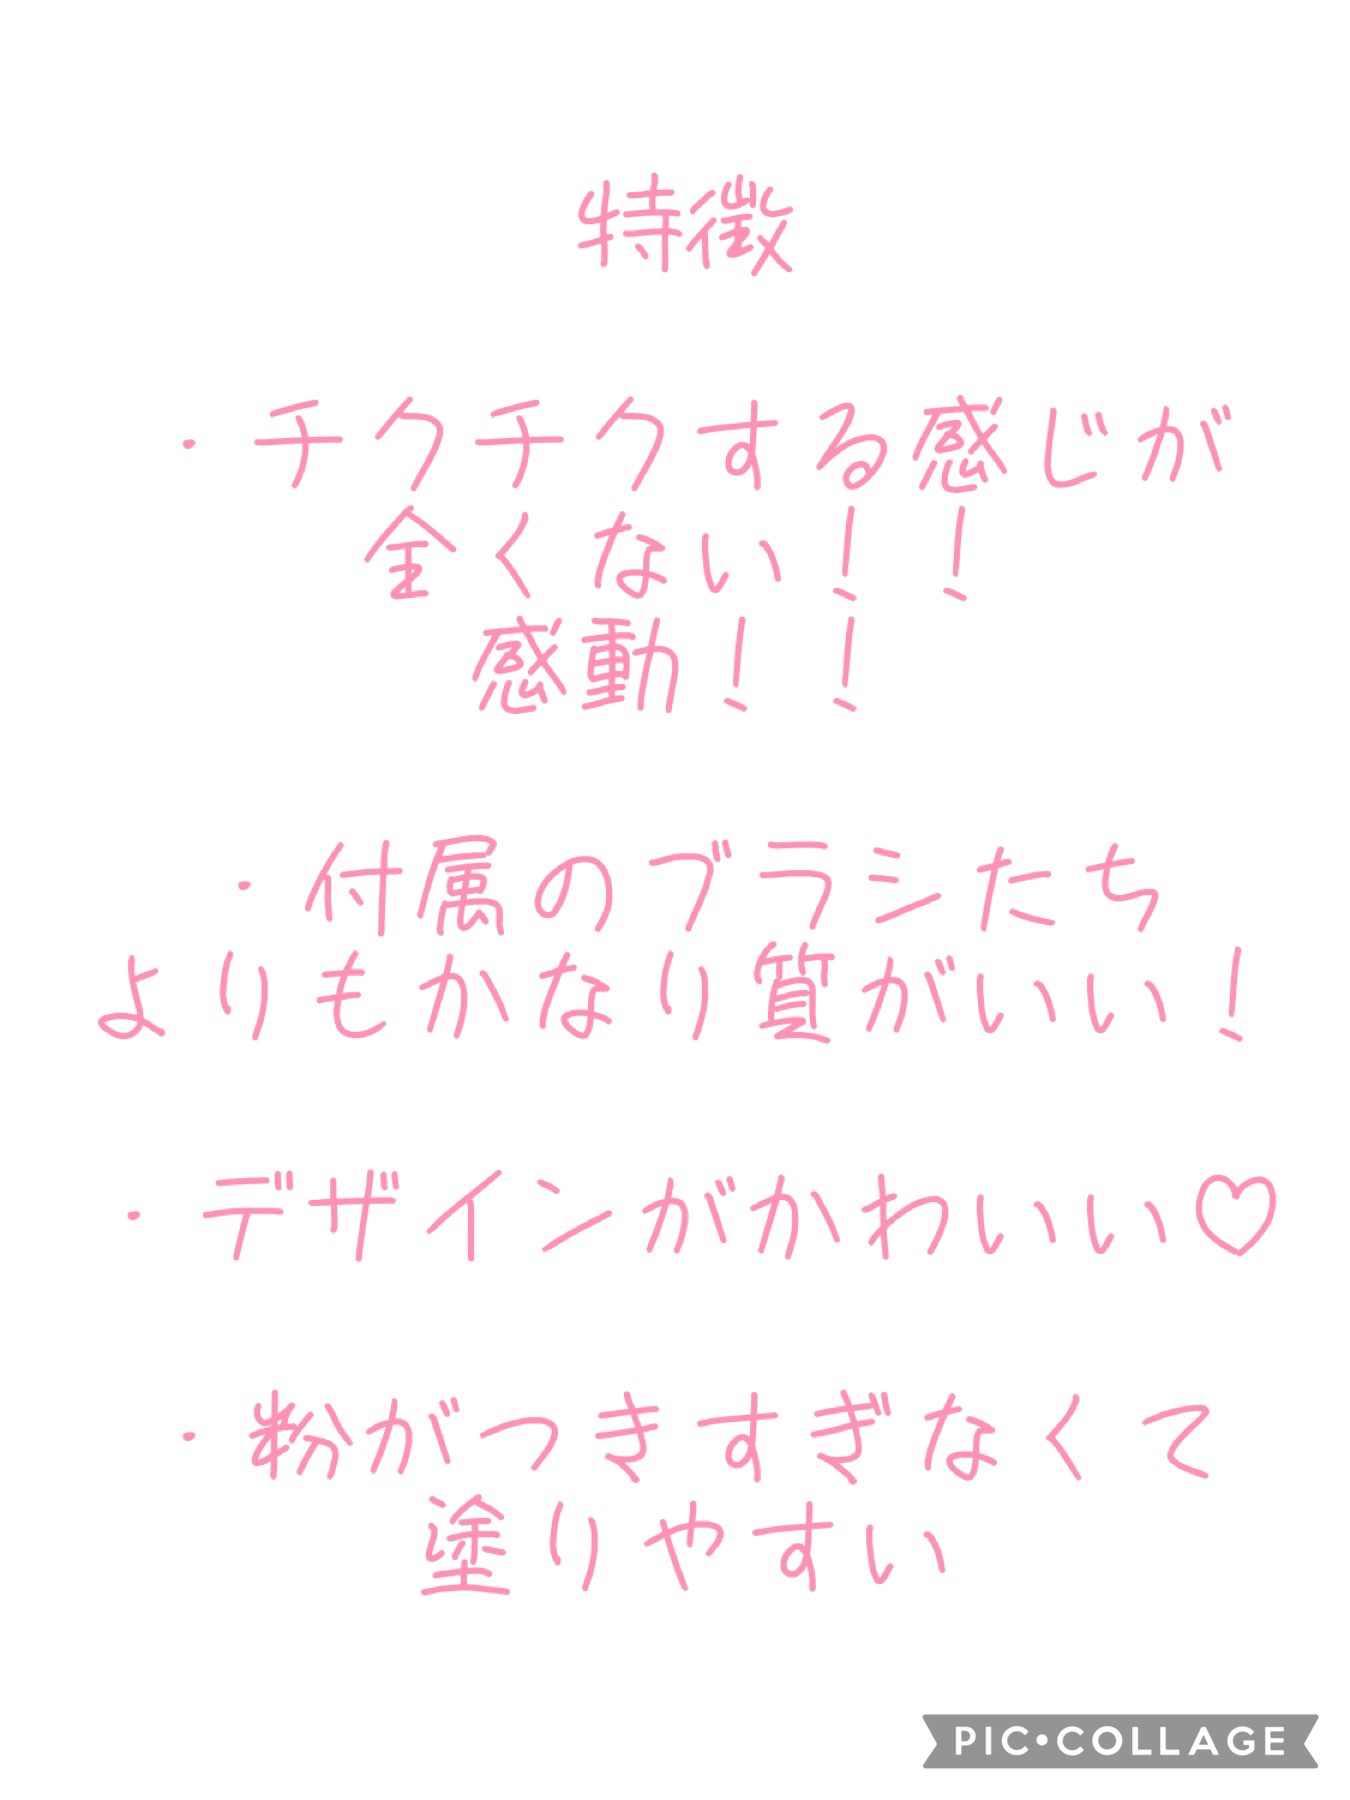 特徴
・チクチクする感じが
全くない！！
感動！！
・付属のブラシたち
よりもかなり質がいい！
・デザインがかわいい♡
・粉がつきすぎなくて
塗りやすい
PIC•COLLAGE